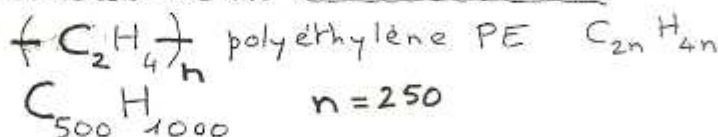 -(C₂H₄)-ₙ polyéthylène PE C₂ₙH₄ₙ
C₅₀₀H₁₀₀₀ n = 250